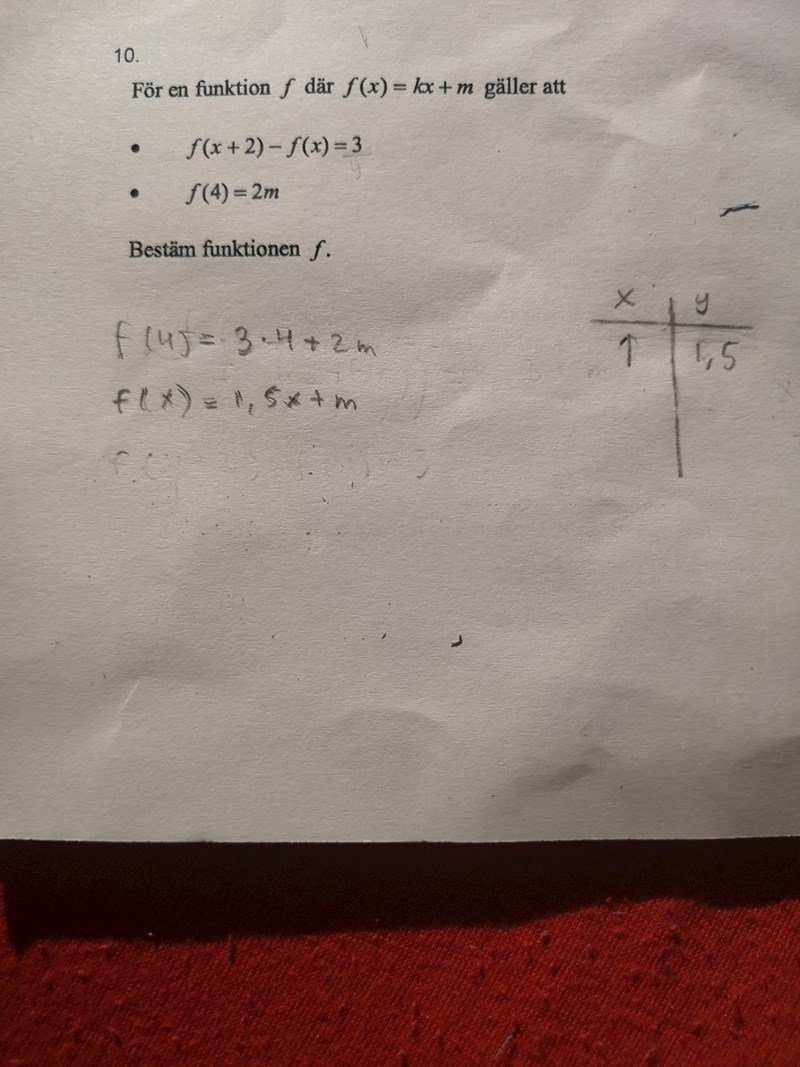 10.
För en funktion f där f(x) = kx + m gäller att
• f(x + 2) – f(x) = 3
• f(4) = 2m
Bestäm funktionen f.
x | y
1 | 1,5
f(4) = 3·4 + 2m
f(x) = 1,5x + m